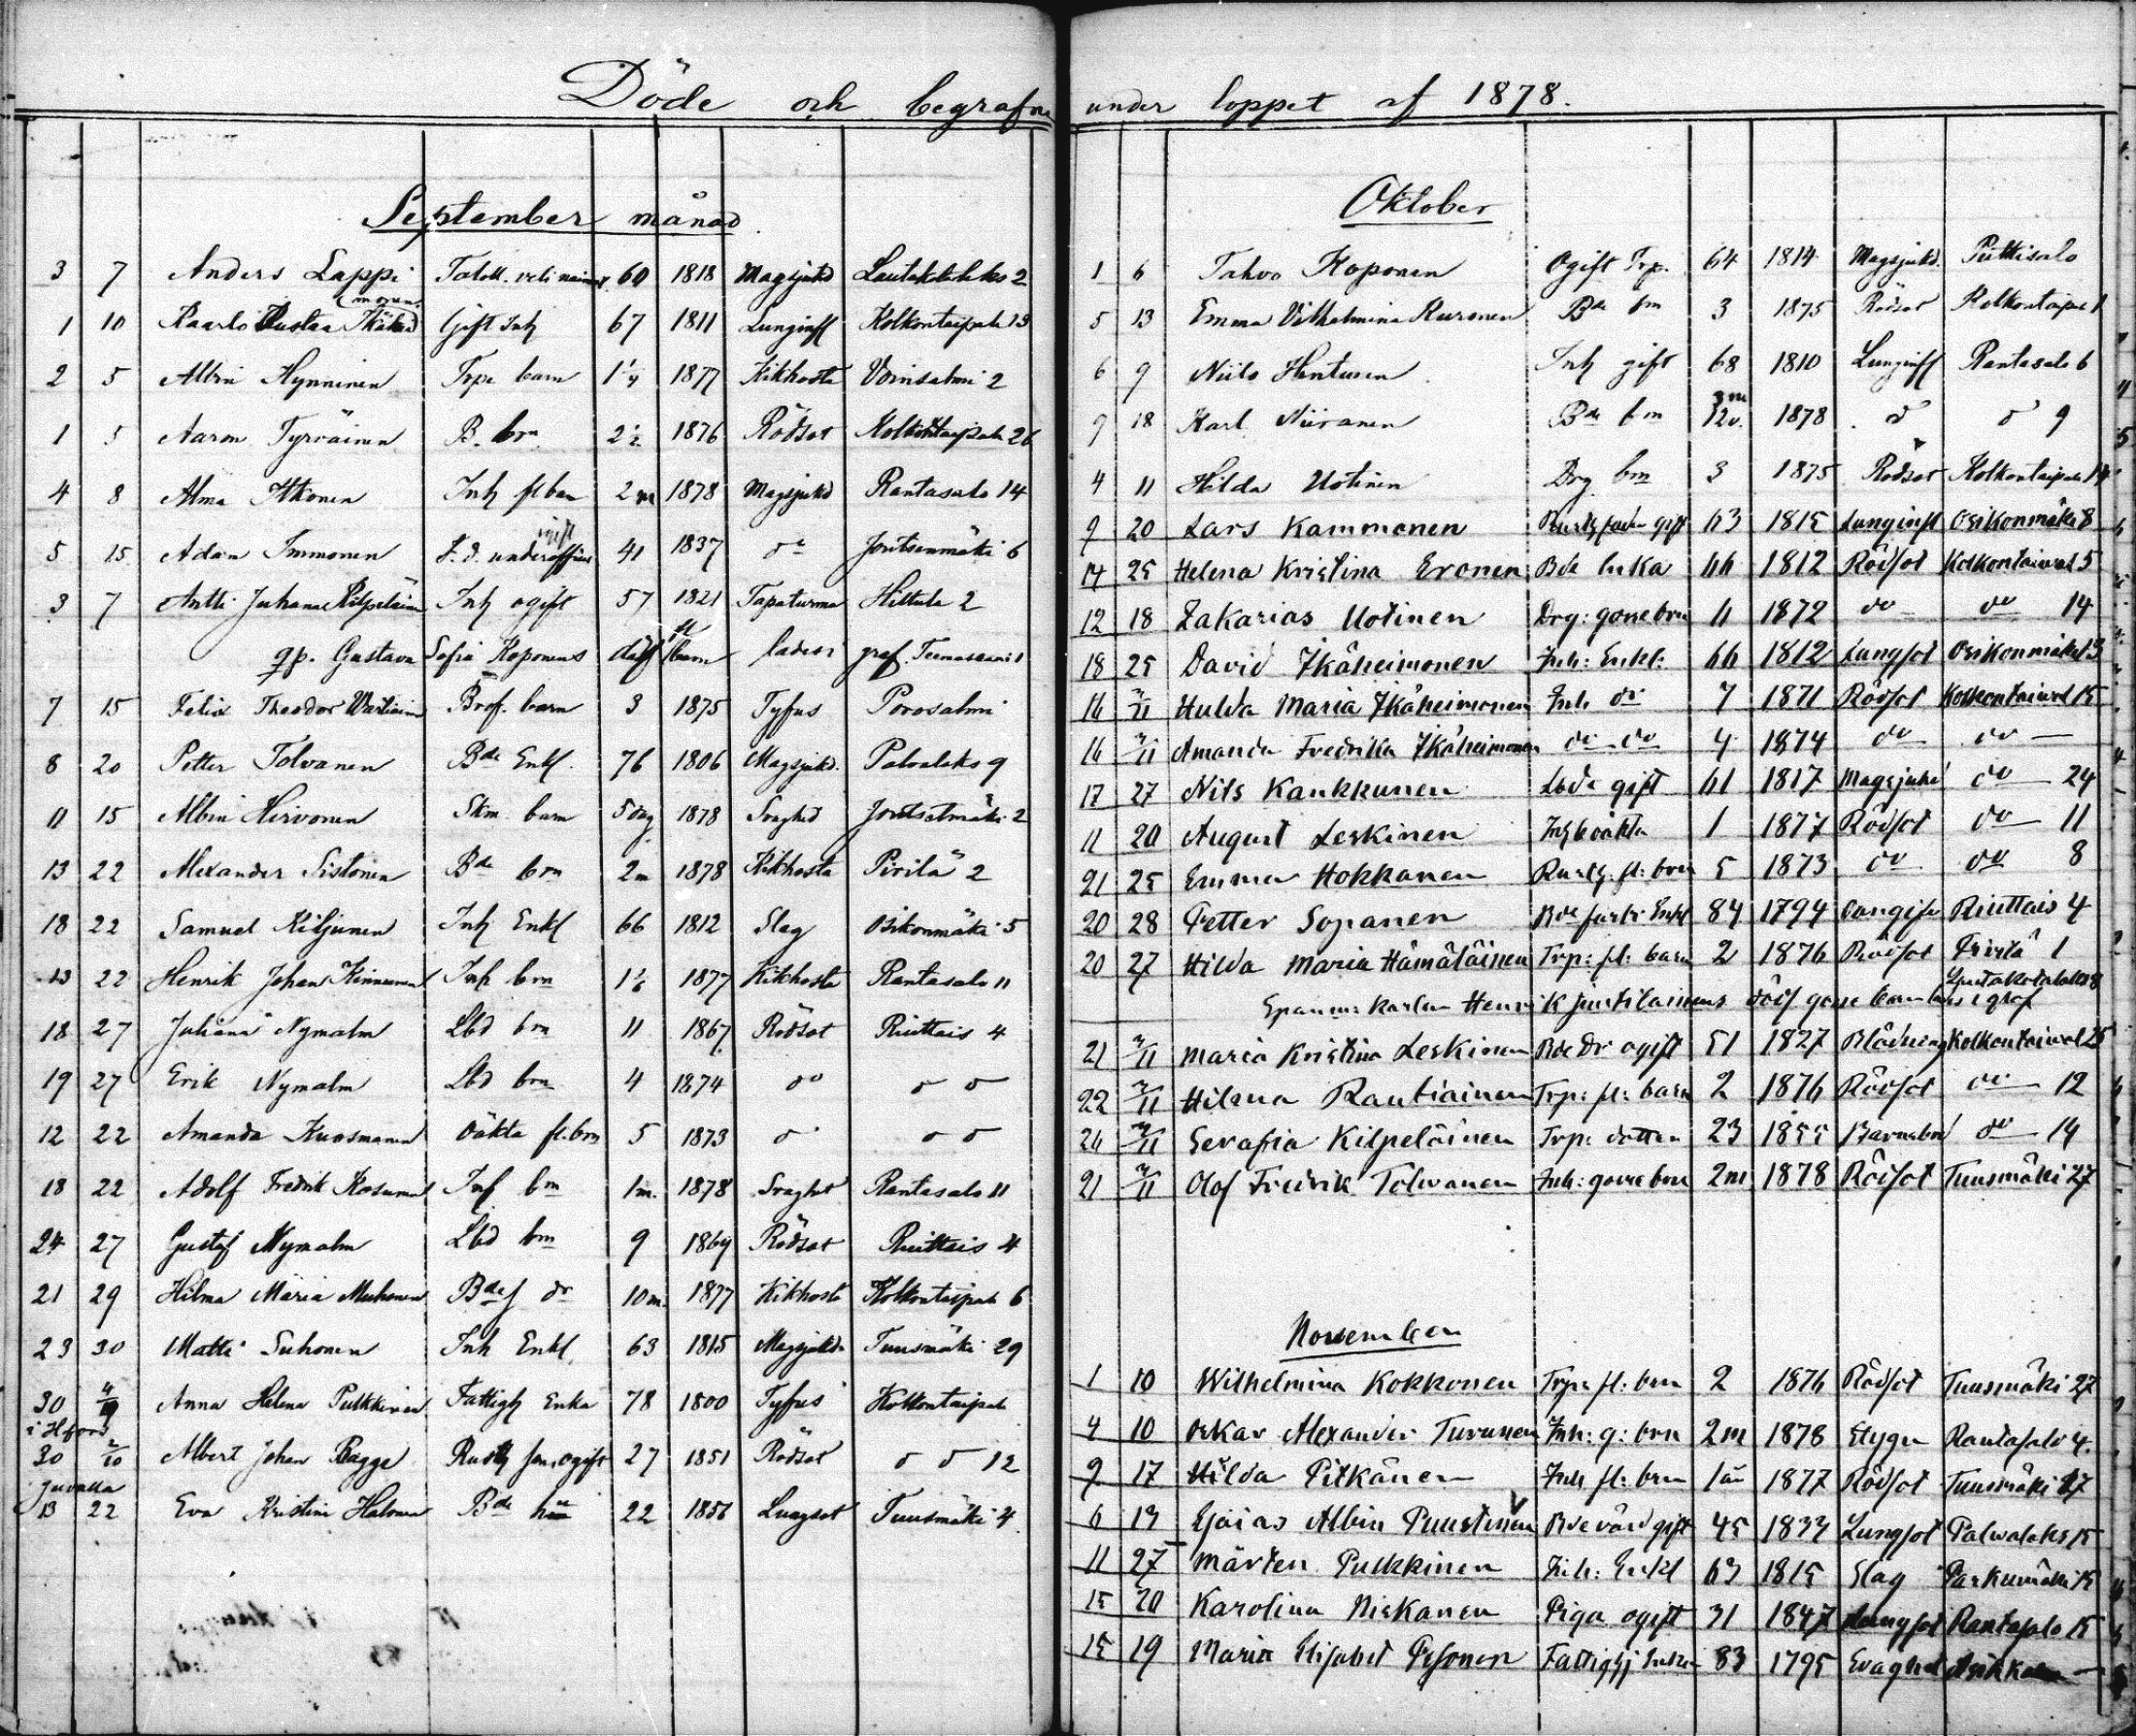 Döde och begrafne under loppet af 1878.
September månad
3 7 Anders Lappi 60 1818 Magsjukd Lautakotalaks 2
1 10 Kaarlo Kustaa Gift Inh 67 1811 Lunginfl Kolkontaipale 13
2 5 Albin Hynninen Trpr barn 1877 Kikhosta Voinsalmi 2
1 5 Aaron Tyrväinen B. brn 2½ 1876 Rödsot Kolkontaipale 26
4 8 Alma Itkonen Inh fl barn 2 m 1878 Magsjukd Rantasalo 14
5 15 Adam Immonen F. d. underofficer 41 1837 do Joutsenmäki 6
3 7 Antti Juhana Kilpeläinen Inh ogift 57 1821 Tapaturma Hiltula 2
gp. Gustava Sofia Koponens barn lades i graf.
7 15 Felix Theodor Wartiainen Prof. barn 3 1875 Tyfus Porosalmi
8 20 Petter Tolvanen Bde Enkl. 76 1806 Magsjukd. Palvalaks 9
11 15 Albin Hirvonen Skm. barn 5 dag 1878 Svaghd 2
13 22 Alexander Sistonen Bde brn 2 m 1878 Kikhosta Pirilä 2
18 22 Samuel Kiljunen Inh Enkl 66 1812 Slag Osikonmäki 5
13 22 Henrik Johan Kinnunen Inh brn 1877 Kikhosta Rantasalo 11
18 27 Juhana Nymalm Lbd brn 11 1867 Rödsot Ruuttais 4
19 27 Erik Nymalm Lbd brn 4 1874 do do do
12 22 Amanda Kuosmanen oäkta fl. brn 5 1873 do do do
18 22 Adolf Fredrik Kosunen Inh brn 1 m. 1878 Svaghet Rantasalo 11
24 27 Gustaf Nymalm Lbd brn 9 1869 Rödsot Ruuttais 4
21 29 Hilma Maria Muhonen 10 m. 1877 Kikhosta Kolkontaipale 6
23 30 Matti Suhonen Inh Enkl 63 1815 Magsjukd Tuusmäki 29
30 Anna Helena Pulkkinen Fattigh Enka 78 1800 Tyfus Kolkontaipale
i Hfors
30 2/10 Albert Johan Bagge Rusth son, ogift 27 1851 Rödsot do do 12
Juvalla
13 22 Eva Kristina Halonen Bde 22 1856 Lungsot Tuusmäki 4
Oktober
1 6 Tahvo Koponen Ogift Trp. 64 1814 Magsjukd. Putkisalo
5 13 Emma Vilhelmina Kuronen Bde brn 3 1875 Rödsot Kolkontaipale 1
6 9 Niilo Hentunen Inh gift 68 1810 Lunginfl Rantasalo 6
9 18 Karl Niiranen Bde brn 3 m 12 v. 1878 do do 9
4 11 Hilda Uotinen Drg brn 3 1875 Rödsot Kolkontaipale 14
9 20 Lars Kammonen gift 63 1815 Lunginfl Osikonmäki 8
14 25 Helena Kristina Eronen Bde Enka 66 1812 Rödsot Kolkontaival 5
12 18 Zakarias Uotinen Drg: gosse brn 6 1872 do do 14
18 25 David Ikäheimonen Inh: Enkl: 66 1812 Lungsot Osikonmäki 13
16 3/11 Hulda Maria Ikäheimonen Inh do 7 1871 Rödsot Kolkontaival 15
16 3/11 Amanda Fredrika Ikäheimonen do do 4 1874 do do
17 27 Nils Kaukkunen Lbde gift 61 1817 Magsjukd do 24
11 20 August Leskinen Inh oäkta 1 1877 Rödsot do 11
21 25 Emma Hokkanen Rusth. fl: brn 5 1873 do do 8
20 28 Petter Sopanen 84 1794 Ruuttais 4
20 27 Hilda Maria Hämäläinen Trp: fl: barn 2 1876 Rödsot Pirilä 1
Lautakotalaks 8
karlen Henrik Juutilainens dödf gosse barn lades i graf
21 3/11 Maria Kristina Leskinen Bde Dr ogift 51 1827 Blödning Kolkontaival 25
22 3/11 Hilma Rautiainen Trp: fl: barn 2 1876 Rödsot do 12
26 3/11 Serafia Kilpeläinen Trp: dotter 23 1855 Barnsbörd do 14
21 3/11 Olof Fredrik Tolwanen Inh: gosse brn 2m 1878 Rödsot Tuusmäki 27
November
1 10 Wilhelmina Kokkonen Trpr fl: brn 2 1876 Rödsot Tuusmäki 27
4 10 Oskar Alexander Turunen Inh: g: brn 2m 1878 Rantasalo 4.
9 17 Hilda Pitkänen Inh fl: brn 1 år 1877 Rödsot Tuusmäki 27
6 13 Esaias Albin Puustinen Bdevärd gift 45 1833 Lungsot Palwalaks 15
11 27 Mårten Pulkkinen Inh: Enkl 63 1815 Slag Parkumäki 15
15 20 Karolina Niskanen Piga ogift 31 1847 Lungsot Rantasalo 15
15 19 Maria Elisabet Pesonen Fattighj Enka 83 1795 Svaghet